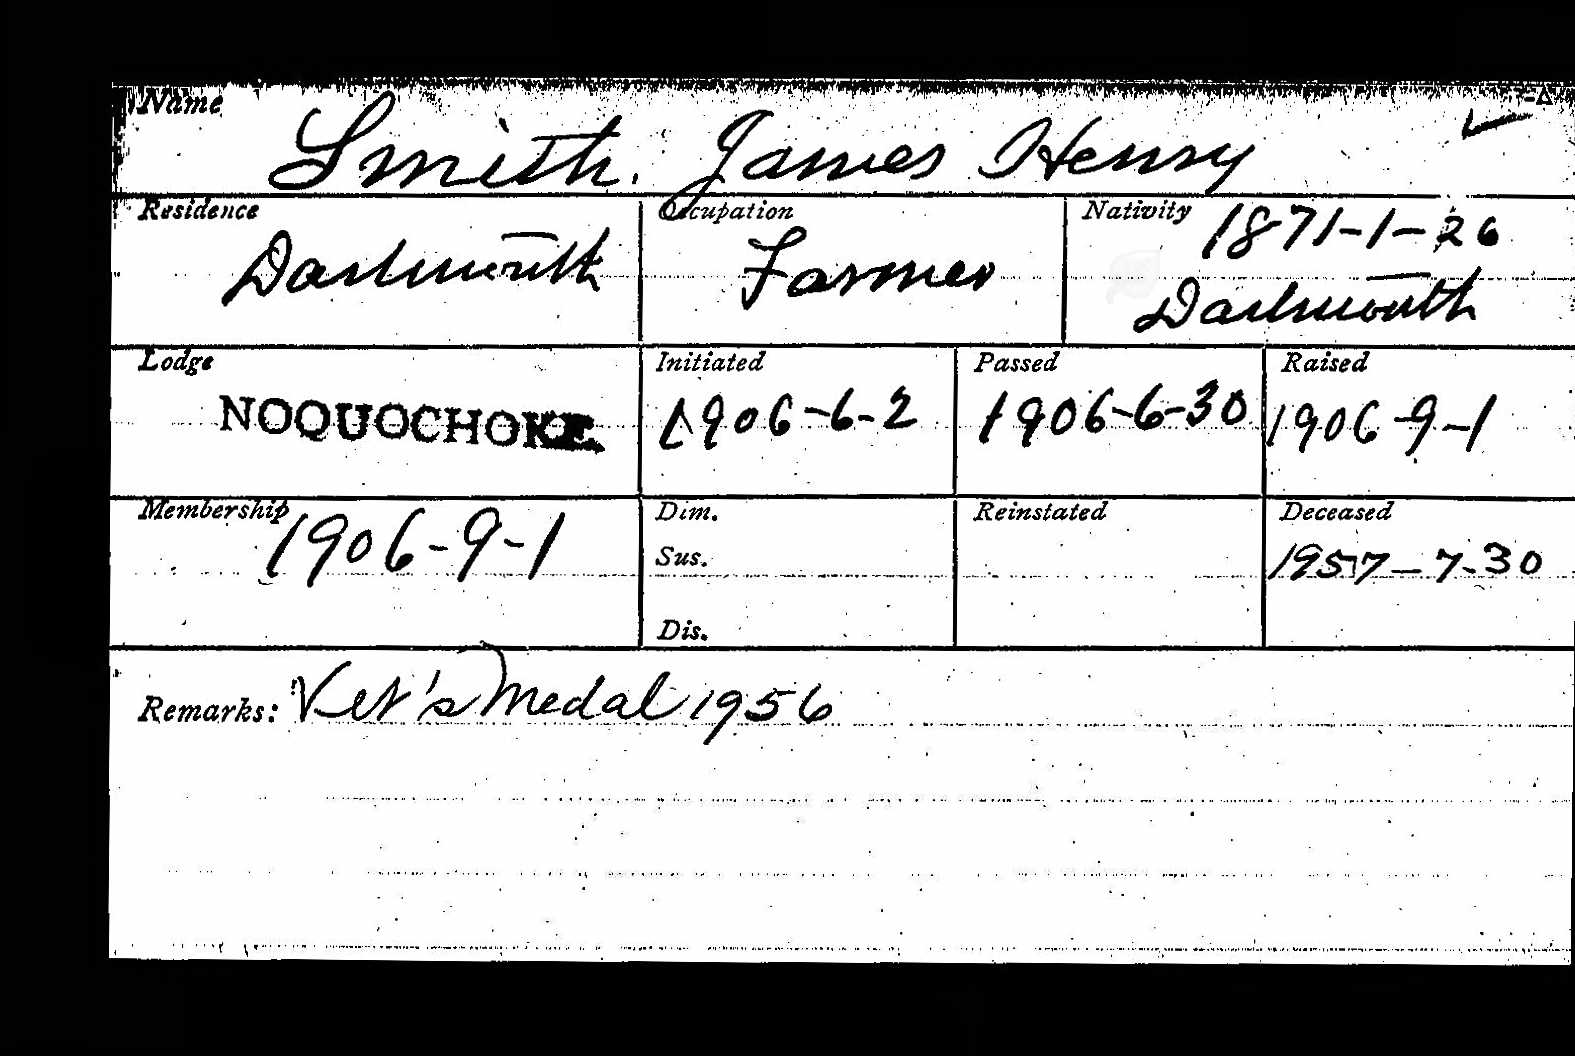 Name
Smith. James Henry
Residence
Dartmouth
Occupation
Farmer
Nativity 1871-1-26
Dartmouth
Lodge
NOQUOCHOKE.
Initiated
1906-6-2
Passed
1906-6-30
Raised
1906-9-1
Membership
1906-9-1
Dim.
Sus.
Dis.
Reinstated
Deceased
1957-7-30
Remarks: Vet's Medal 1956